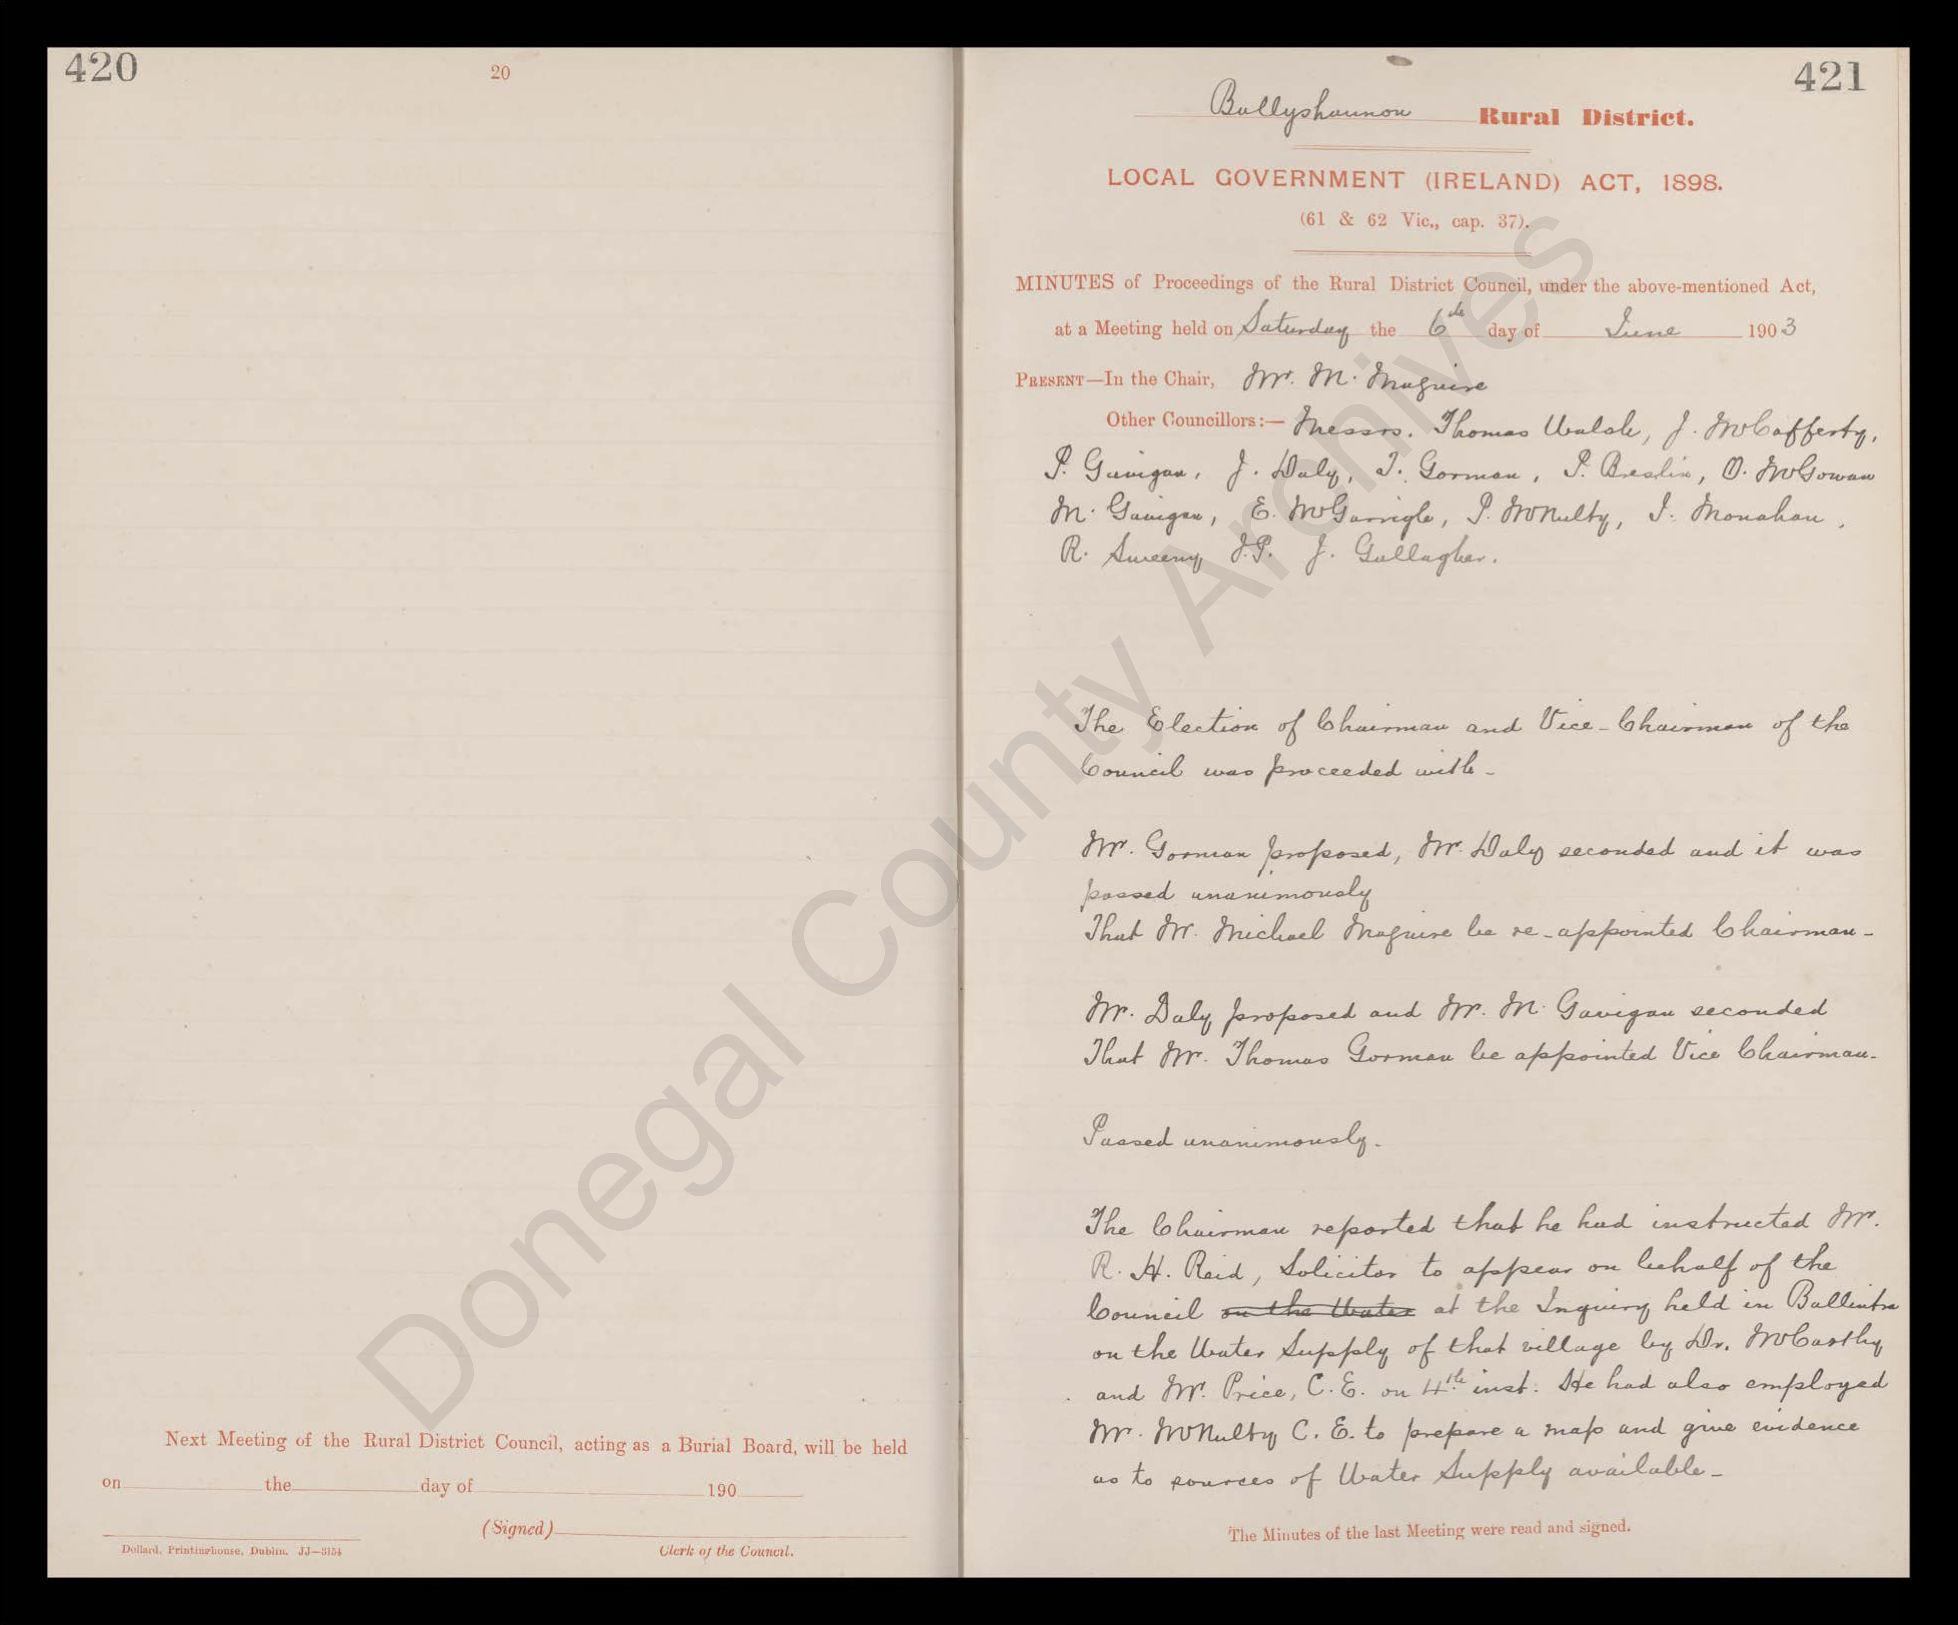 420
20
Next Meeting of the Rural District Council, acting as a Burial Board, will be held
on the day of 190
(Signed)
Clerk of the Council.
Dollard, Printinghouse, Dublin. JJ—3154
421
Ballyshannon Rural District.
LOCAL GOVERNMENT (IRELAND) ACT, 1898.
(61 & 62 Vic., cap. 37).
MINUTES of Proceedings of the Rural District Council, under the above-mentioned Act,
at a Meeting held on Saturday the 6th day of June 1903
PRESENT—In the Chair, Mr. M. Maguire
Other Councillors:— Messrs. Thomas Walsh, J. McCafferty,
P. Gavigan, J. Daly, T. Gorman, P. Breslin, O. McGowan
M. Gavigan, E. McGarrigle, P. McNulty, J. Monahan,
R. Sweeny J.P. J. Gallagher.
The Election of Chairman and Vice-Chairman of the
Council was proceeded with-
Mr. Gorman proposed, Mr. Daly seconded and it was
passed unanimously
That Mr. Michael Maguire be re-appointed Chairman-
Mr. Daly proposed and Mr. M. Gavigan seconded
That Mr. Thomas Gorman be appointed Vice Chairman-
Passed unanimously.
The Chairman reported that he had instructed Mr.
R. H. Reid, Solicitor to appear on behalf of the
Council on the Water at the Inquiry held in Ballintra
on the Water Supply of that village by Dr. McCarthy
and Mr. Price, C.E. on 4th inst. He had also employed
Mr. McNulty C.E. to prepare a map and give evidence
as to sources of Water Supply available-
The Minutes of the last Meeting were read and signed.
Donegal County Archives